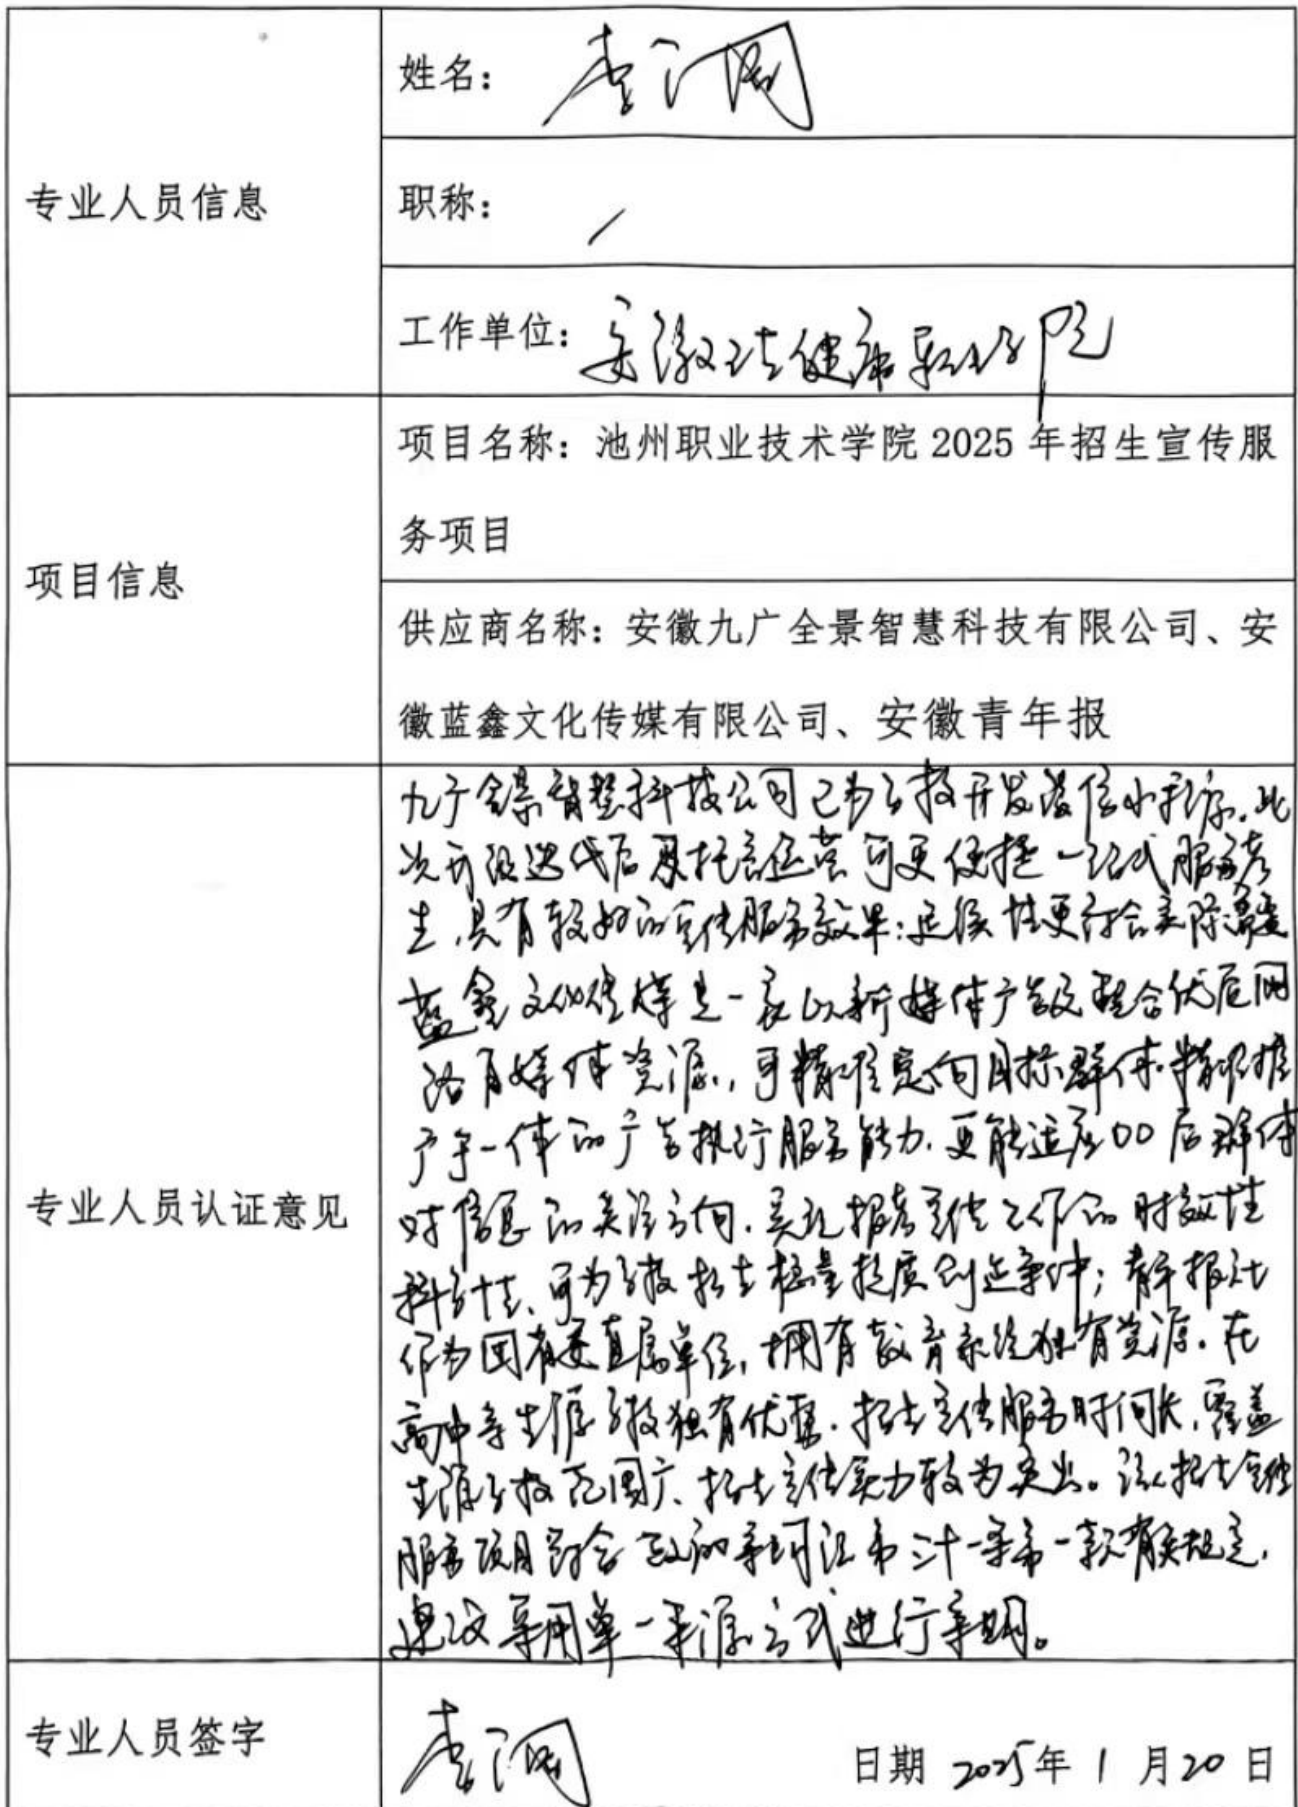 专业人员信息
姓名：李
职称：/
工作单位：安徽 健康职业学院
项目信息
项目名称：池州职业技术学院 2025 年招生宣传服
务项目
供应商名称：安徽九广全景智慧科技有限公司、安
徽蓝鑫文化传媒有限公司、安徽青年报
专业人员认证意见
九广全景智慧科技公司已为学校开发微信小程序，此
次升级迭代后 托管运营可更便捷一站式服务考
生，具有较好的宣传服务效果；延续性更符合实际需要
蓝鑫文化传媒是一家以新媒体广告及整合优质网
络自媒体资源，可精准定向目标群体精准推
广于一体的广告执行服务能力，更能适应00后群体
对信息的关注方向，实现报考宣传工作的时效性
科学性、可为学校招生稳量提质创造条件；青年报社
作为团省委直属单位，拥有教育系统独有资源，在
高中等生源学校独有优势，招生宣传服务时间长，覆盖
生源学校范围广、招生宣传实力较为突出。该招生宣传
服务项目符合政府采购法第三十一条第一款有关规定，
建议采用单一来源方式进行采购。
专业人员签字
李
日期 2025年 1 月20 日